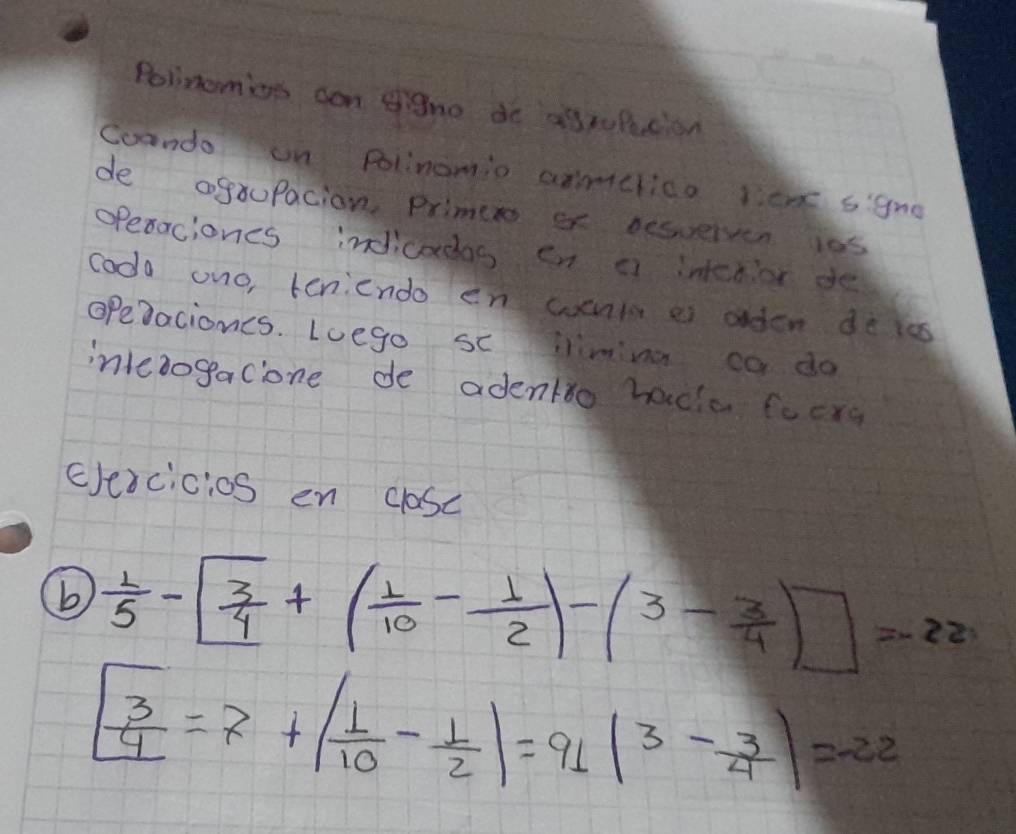 Polinomios con signo de agrupacion
Cuando un Polinomio aritmetico tiene signo
de agrupacion, Primero se resuelven las
operaciones indicadas en el interior de
cada una, teniendo en cuenta el orden de las
operaciones. Luego se ilimina ca da
interogacione de adentro hacia fuera
Ejercicios en clase
(b) 1/5 - [3/4 + (1/10 - 1/2) - (3 - 3/4)] = -22
[3/4 = 7 + (1/10 - 1/2) = 91 (3 - 3/4) = -22